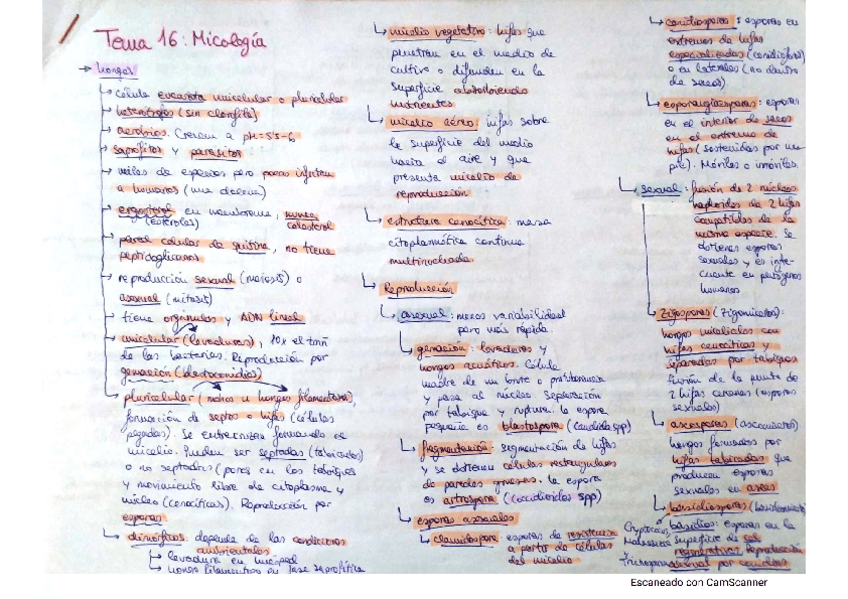 Tema 16: Micología
→ hongos
→ célula eucariota unicelular o pluricelular
→ heterótrofos (sin clorofila)
→ aerobios. Crecen a pH=5'5-6
→ saprófitos y parásitos
→ miles de especies pero pocas infectan
a humanos (una docena)
→ ergosterol en membrana, nunca
(esteroles) colesterol
→ pared celular de quitina, no tiene
peptidoglicano
→ reproducción sexual (meiosis) o
asexual (mitosis)
→ tiene orgánulos y ADN lineal
→ unicelular (levaduras), 10x el tamñ
de las bacterias. Reproducción por
gemación (blastoconidios)
→ pluricelular (mohos u hongos filamentosos),
formación de septos o hifas (células
pegadas). Se entrecruzan formando el
micelio. Pueden ser septadas (tabicadas)
o no septadas (poros en los tabiques
y movimiento libre de citoplasma y
núcleo (cenocíticas). Reproducción por
esporas
→ dimórficos: depende de las condiciones
ambientales
→ levadura en huésped
→ hongo filamentoso en fase saprofítica
→ micelio vegetativo: hifas que
penetran en el medio de
cultivo o difunden en la
superficie absorbiendo
nutrientes
→ micelio aéreo: hifas sobre
la superficie del medio
hacia el aire y que
presenta micelio de
reproducción
→ estructura cenocítica: masa
citoplasmática continua
multinucleada
→ Reproducción
→ asexual: menos variabilidad
pero más rápida
→ gemación: levaduras y
hongos acuáticos. Célula
madre de un brote o protuberancia
y pasa al núcleo. Separación
por tabique y ruptura. la espora
pequeña es blastospora (candida spp)
→ fragmentación: segmentación de hifas
y se obtienen células rectangulares
de paredes gruesas. la espora
es artrospora (coccidioides spp)
→ esporas asexuales
→ clamidospora: esporas de resistencia
a partir de células
del micelio
→ conidiosporas: esporas en
extremos de hifas
especializadas (conidióforo)
o en laterales (no dentro
de sacos)
→ esporangiosporas: esporas
en el interior de sacos
en el extremo de
hifas (sostenidas por un
pie). Móviles o inmóviles.
→ sexual: fusión de 2 núcleos
haploides de 2 hifas
compatibles de la
misma especie. Se
obtienen esporas
sexuales y es
en patógenos
humanos
→ zigosporas (zigomicetos):
hongos miceliales con
hifas cenocíticas y
separadas por tabiques
fusión de la punta de
2 hifas cercanas (esporas
sexuales)
→ ascosporas (ascomicetos)
hongos formados por
hifas tabicadas que
producen esporas
sexuales en ascas
→ basidiosporas
basidios: esporas en la
superficie de
Reproducción
asexual por conidios
Escaneado con CamScanner